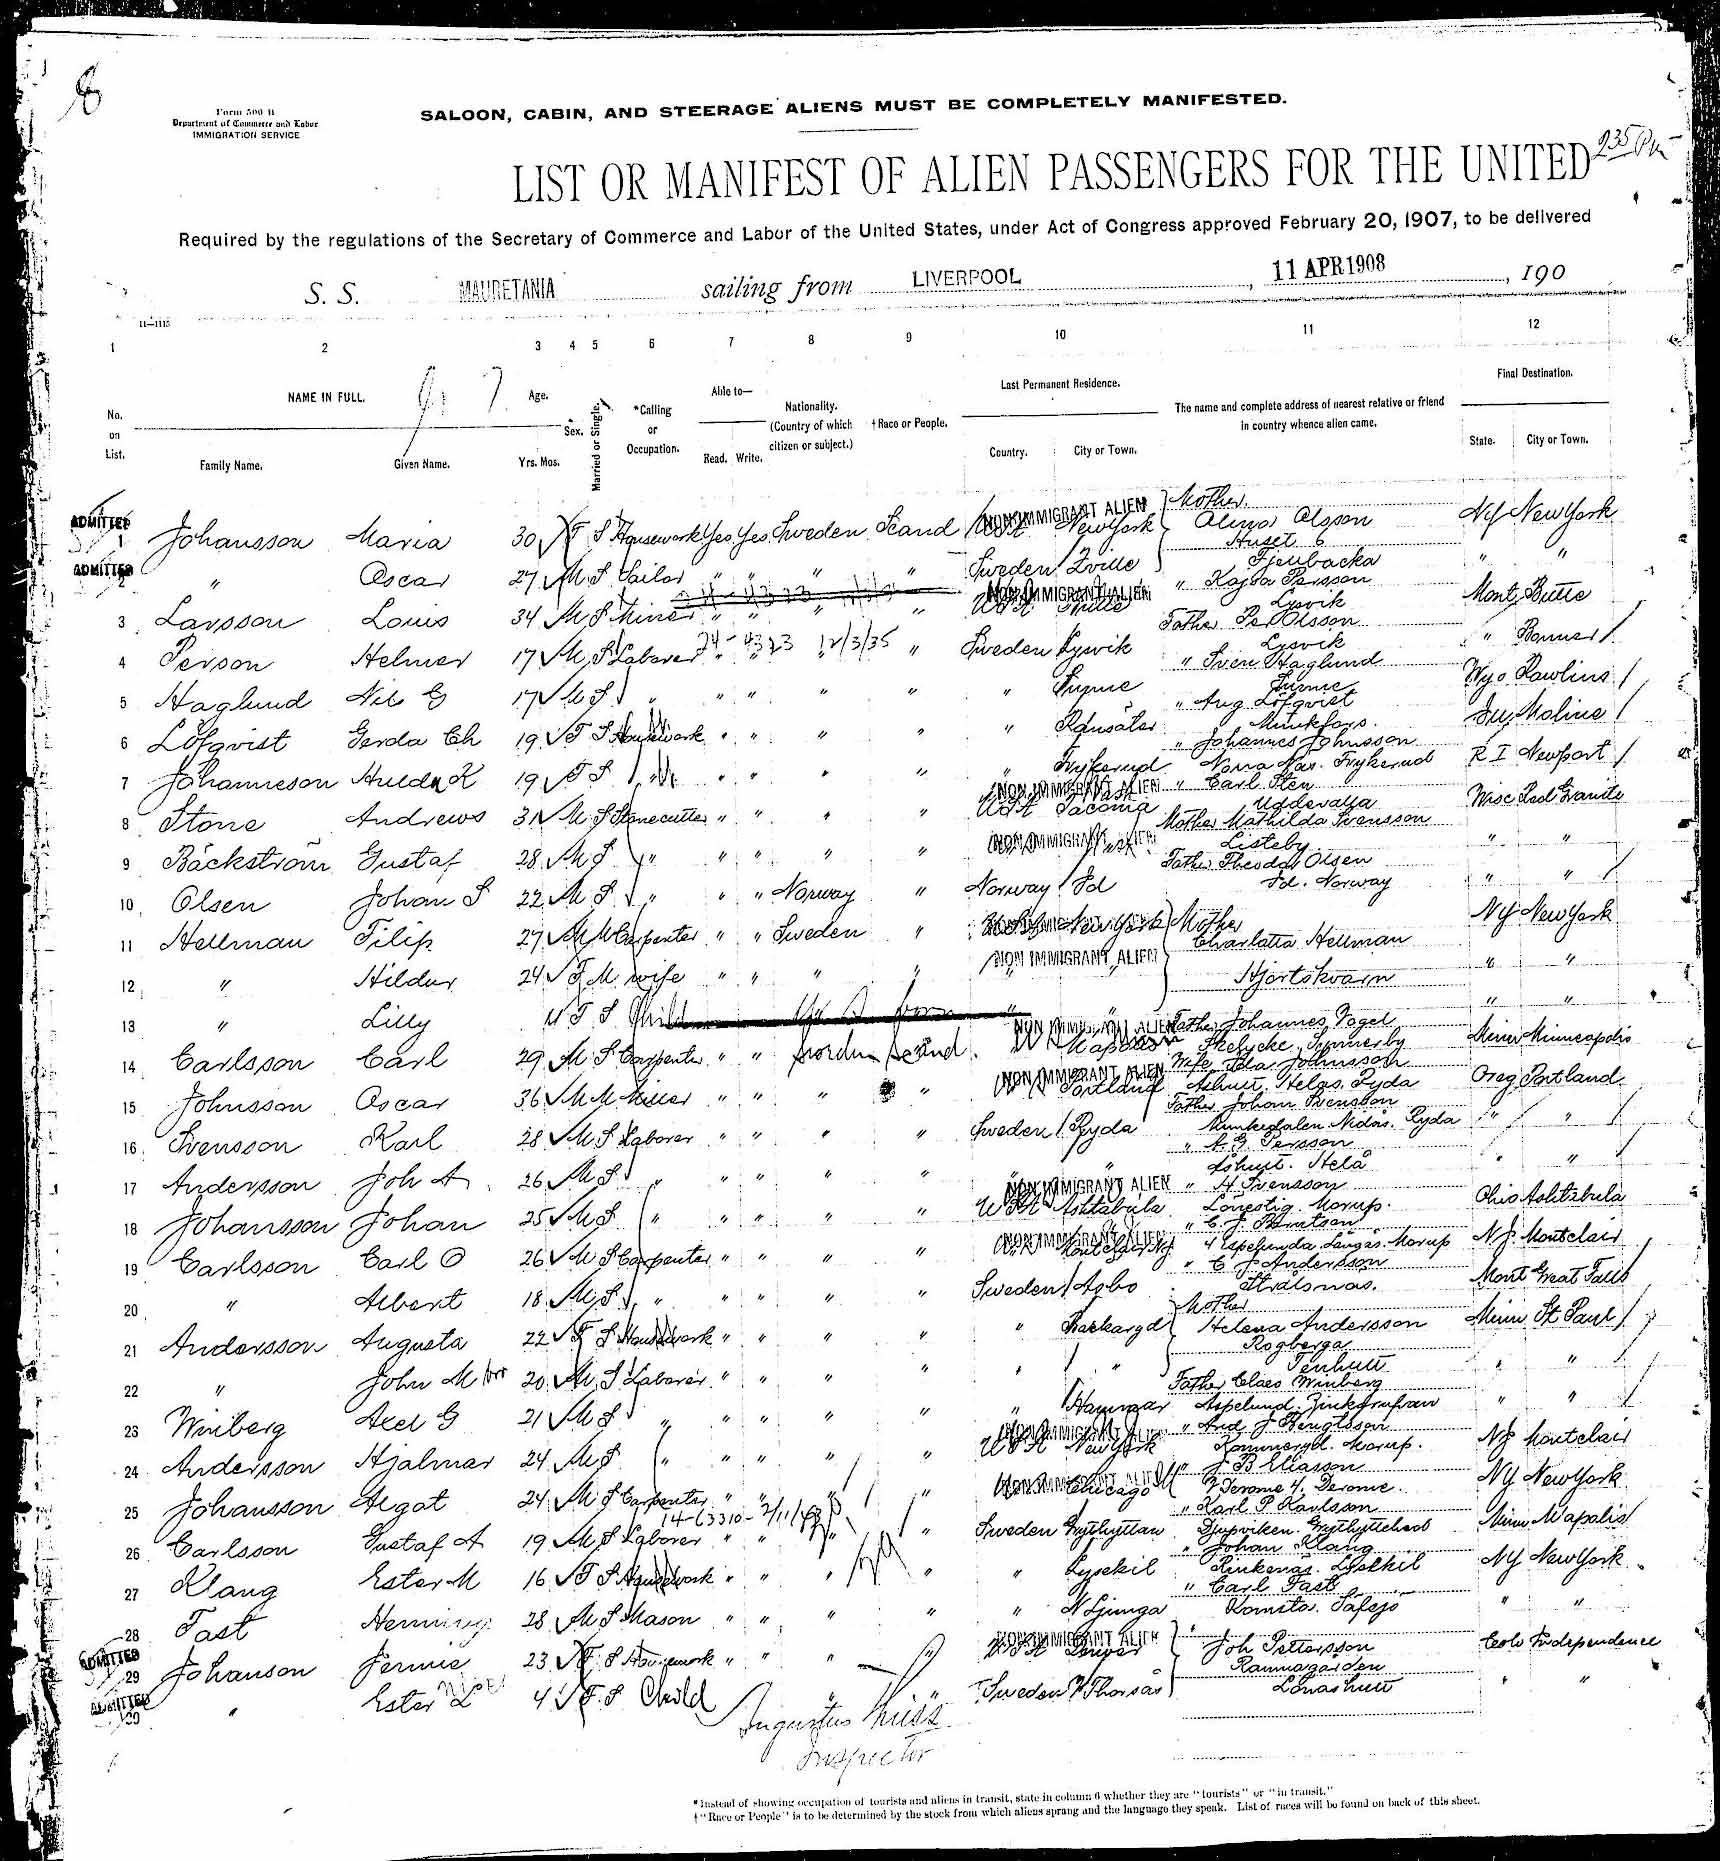 8
Form 500 B
Department of Commerce and Labor
IMMIGRATION SERVICE
SALOON, CABIN, AND STEERAGE ALIENS MUST BE COMPLETELY MANIFESTED.
2 35 Pm
LIST OR MANIFEST OF ALIEN PASSENGERS FOR THE UNITED
Required by the regulations of the Secretary of Commerce and Labor of the United States, under Act of Congress approved February 20, 1907, to be delivered
S. S. MAURETANIA sailing from LIVERPOOL, 11 APR 1908, 190
11—1115
1 2 3 4 5 6 7 8 9 10 11 12
No. on List.
NAME IN FULL.
Family Name. Given Name.
Age.
Yrs. Mos.
Sex.
Married or Single.
*Calling or Occupation.
Able to—
Read. Write.
Nationality. (Country of which citizen or subject.)
†Race or People.
Last Permanent Residence.
Country. City or Town.
The name and complete address of nearest relative or friend in country whence alien came.
Final Destination.
State. City or Town.
ADMITTED 1 Johansson Maria 30 F S Housework Yes Yes Sweden Scand NON IMMIGRANT ALIEN USA New York Mother Alina Olsson Huset 6 NY New York
ADMITTED 2 " Oscar 27 M S Sailor " " " " Sweden Fjellbacka " "
3 Larsson Louis 34 M S Miner " " " " NON IMMIGRANT ALIEN USA " Kajsa Persson Lysvik Mont Butte
4 Person Helmer 17 M S Laborer 24-4323 12/3/35 " Sweden Lysvik Father Per Olsson Lysvik " Bonner
5 Haglund Nils G 17 M S " " " " " " Sunne " Sven Haglund Sunne Wyo Rawlins
6 Löfqvist Gerda Ch 19 F S Housework " " " " " Ransäter " Aug Löfqvist Munkfors. Moline
7 Johanneson Hulda K 19 F S " " " " " " Frykerud " Johannes Johnsson Norra Frykerud R I Newport
8 Stone Andrews 31 M S Stonecutter " " " " NON IMMIGRANT ALIEN USA Tacoma " Carl Sten Uddevalla Wisc Red Granite
9 Bäckström Gustaf 28 M S " " " " " NON IMMIGRANT ALIEN Mother Mathilda Svensson Listeby " "
10 Olsen Johan S 22 M S " " " Norway " Norway Id Father Theodor Olsen Id. Norway " "
11 Hellman Filip 27 M M Carpenter " " Sweden " New York Mother Charlotta Hellman NY New York
12 " Hildur 24 F M wife " " " " NON IMMIGRANT ALIEN " Hjortskvarn " "
13 " Lilly 4 F S Child " " " "
14 Carlsson Carl 29 M S Carpenter " " Sweden Scand. NON IMMIGRANT ALIEN Mapolis Father Johannes Fogel Minn Minneapolis
15 Johnsson Oscar 36 M M Miller " " " " NON IMMIGRANT ALIEN Portland Wife Ida Johnsson Ryda Oreg Portland
16 Svensson Karl 28 M S Laborer " " " " Sweden Ryda Father Johan Svensson Ryda " "
17 Andersson Joh A 26 M S " " " " " " " " A. G. Persson " "
18 Johansson Johan 25 M S " " " " " NON IMMIGRANT ALIEN USA Ashtabula " H Svensson Morup. Ohio Ashtabula
19 Carlsson Carl O 26 M S Carpenter " " " " NON IMMIGRANT ALIEN Montclair NJ " C. J. Långås Morup N J. Montclair
20 " Albert 18 M S " " " " " Sweden Asbo " C J Andersson Strålsnäs. Mont Great Falls
21 Andersson Augusta 22 F S Housework " " " " " Backaryd Mother Helena Andersson Rogberga Minn St Paul
22 " John M 20 M S Laborer " " " " " Tenhult " "
23 Winberg Axel G 21 M S " " " " " " Hammar Father Claes Winberg Aspelund. Zinkgrufvan " "
24 Andersson Hjalmar 24 M S " " " " " NON IMMIGRANT ALIEN USA New York " And. J Bengtsson Morup. NJ Montclair
25 Johansson Algot 24 M S Carpenter " " " " NON IMMIGRANT ALIEN Chicago " J B Eliasson Derome. NY New York
14-63310-
26 Carlsson Gustaf A 19 M S Laborer " " " " Sweden Grythyttan " Karl P Karlsson Djupviken. Minn Mapolis
27 Klang Ester M 16 F S Housework " " " " " Lysekil " Johan Klang Lysekil NY New York
28 Fast Henning 28 M S Mason " " " " " N Ljunga " Carl Fast " "
ADMITTED 29 Johanson Jennie 23 F S Housework " " " NON IMMIGRANT ALIEN USA Denver Joh Pettersson Colo Independence
ADMITTED 30 " Ester L niece 4 F S Child " " Sweden Thorsås " "
Augustus
Inspector
*Instead of showing occupation of tourists and aliens in transit, state in column 6 whether they are "tourists" or "in transit."
†"Race or People" is to be determined by the stock from which aliens sprang and the language they speak. List of races will be found on back of this sheet.